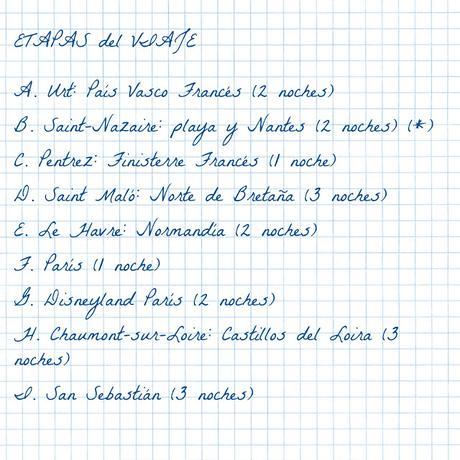 ETAPAS del VIAJE
A. Urt: País Vasco Francés (2 noches)
B. Saint-Nazaire: playa y Nantes (2 noches) (*)
C. Pentrez: Finisterre Francés (1 noche)
D. Saint Maló: Norte de Bretaña (3 noches)
E. Le Havre: Normandía (2 noches)
F. París (1 noche)
G. Disneyland París (2 noches)
H. Chaumont-sur-Loire: Castillos del Loira (3
noches)
I. San Sebastián (3 noches)